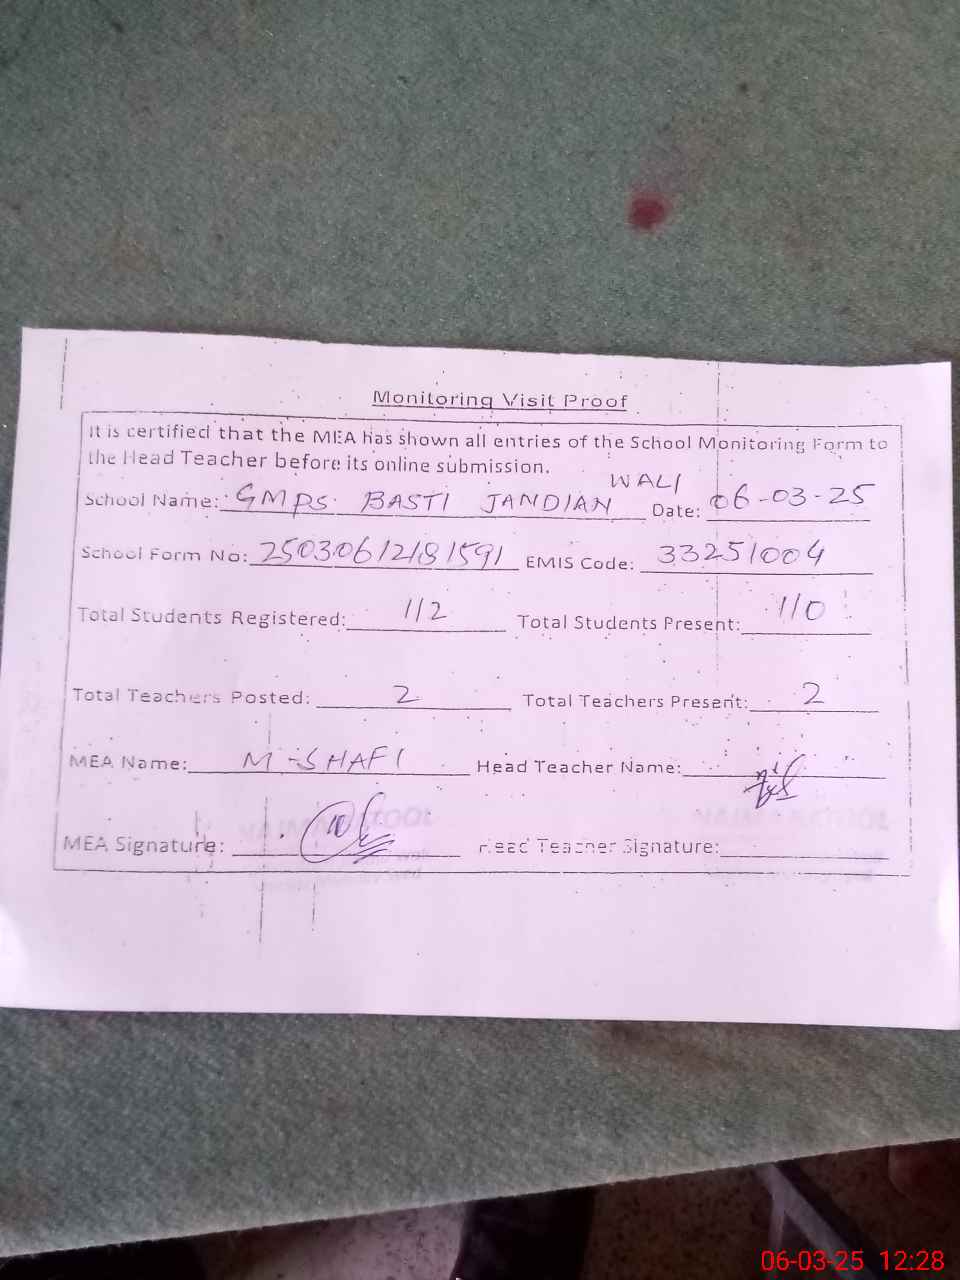 Monitoring Visit Proof
It is certified that the MEA has shown all entries of the School Monitoring Form to
the Head Teacher before its online submission.
School Name: GMPS BASTI JANDIAN WALI Date: 06-03-25
School Form No: 25030612181591 EMIS Code: 33251004
Total Students Registered: 112 Total Students Present: 110
Total Teachers Posted: 2 Total Teachers Present: 2
MEA Name: M-SHAFI Head Teacher Name:
MEA Signature: Head Teacher Signature:
06-03-25 12:28